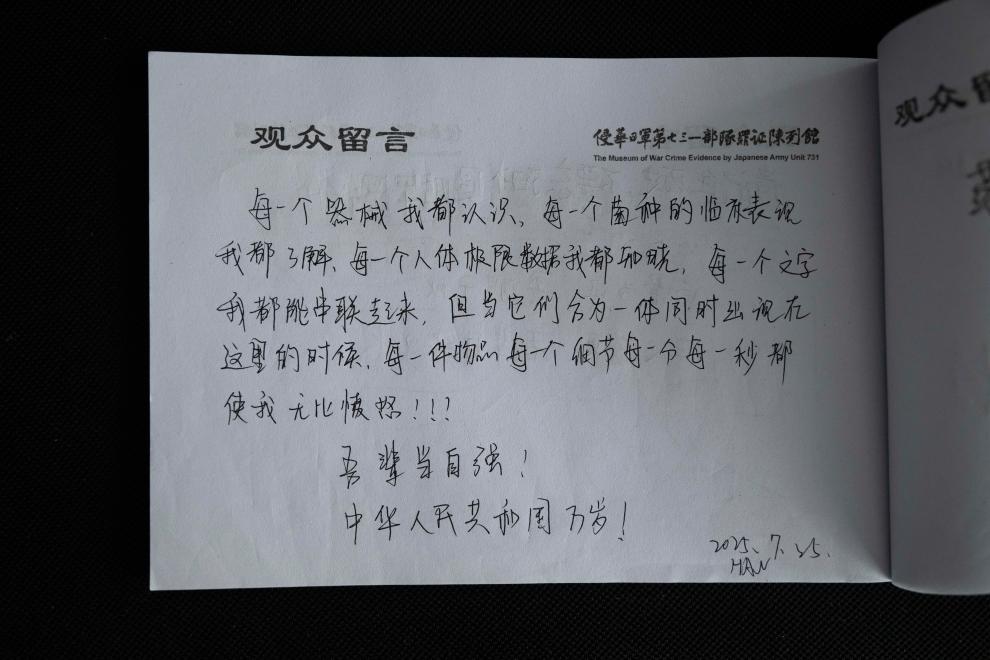 观众留言
侵華日軍第七三一部隊罪证陳列館
The Museum of War Crime Evidence by Japanese Army Unit 731
每一个器械我都认识，每一个菌种的临床表现
我都了解，每一个人体极限数据我都知晓，每一个文字
我都能串联起来，但当它们合为一体同时出现在
这里的时候，每一件物品每一个细节每一分每一秒都
使我无比愤怒！！！
吾辈当自强！
中华人民共和国万岁！
2025.7.25.
HAN
观众留